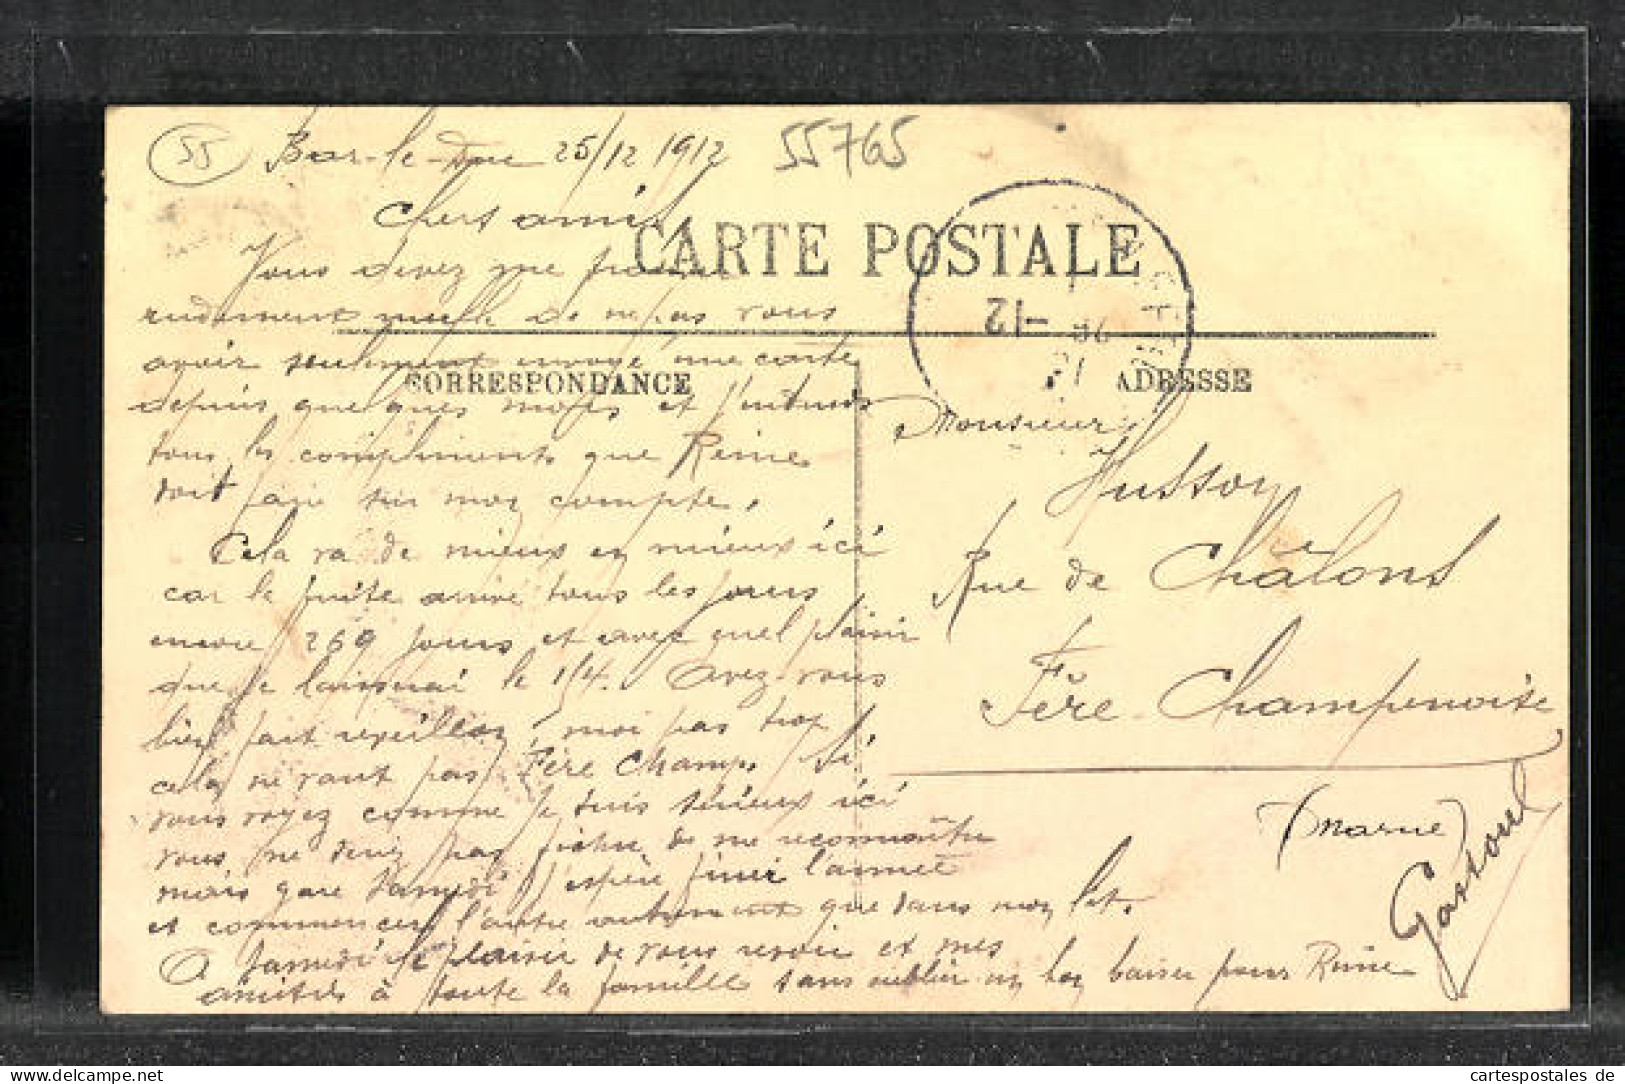 55 Bar-le-Duc 25/12 1912 55765
Chers amis,
CARTE POSTALE
Vous devez me
rudement de ne pas vous
avoir seulement envoyé une carte
CORRESPONDANCE
ADRESSE
depuis quelques mois et j'entends
tous les compliments que Reine
doit faire sur mon compte.
Cela va de mieux en mieux ici
car la fuite arrive tous les jours
encore 269 jours et avec quel plaisir
que je le 1/4. Avez-vous
bien fait réveillon, moi pas trop
cela ne vaut pas Fère Champ. Si
vous voyez comme je suis sérieux ici
vous ne devez pas de me reconnaître
mais gare samedi j'espère finir l'année
et commencer l'autre autrement que dans mon lit.
A samedi le plaisir de vous revoir et mes
amitiés à toute la famille sans oublier un bon baiser pour Reine
Gaston
-12
Monsieur
Husson
Rue de Châlons
Fère-Champenoise
(Marne)
cartespostales de